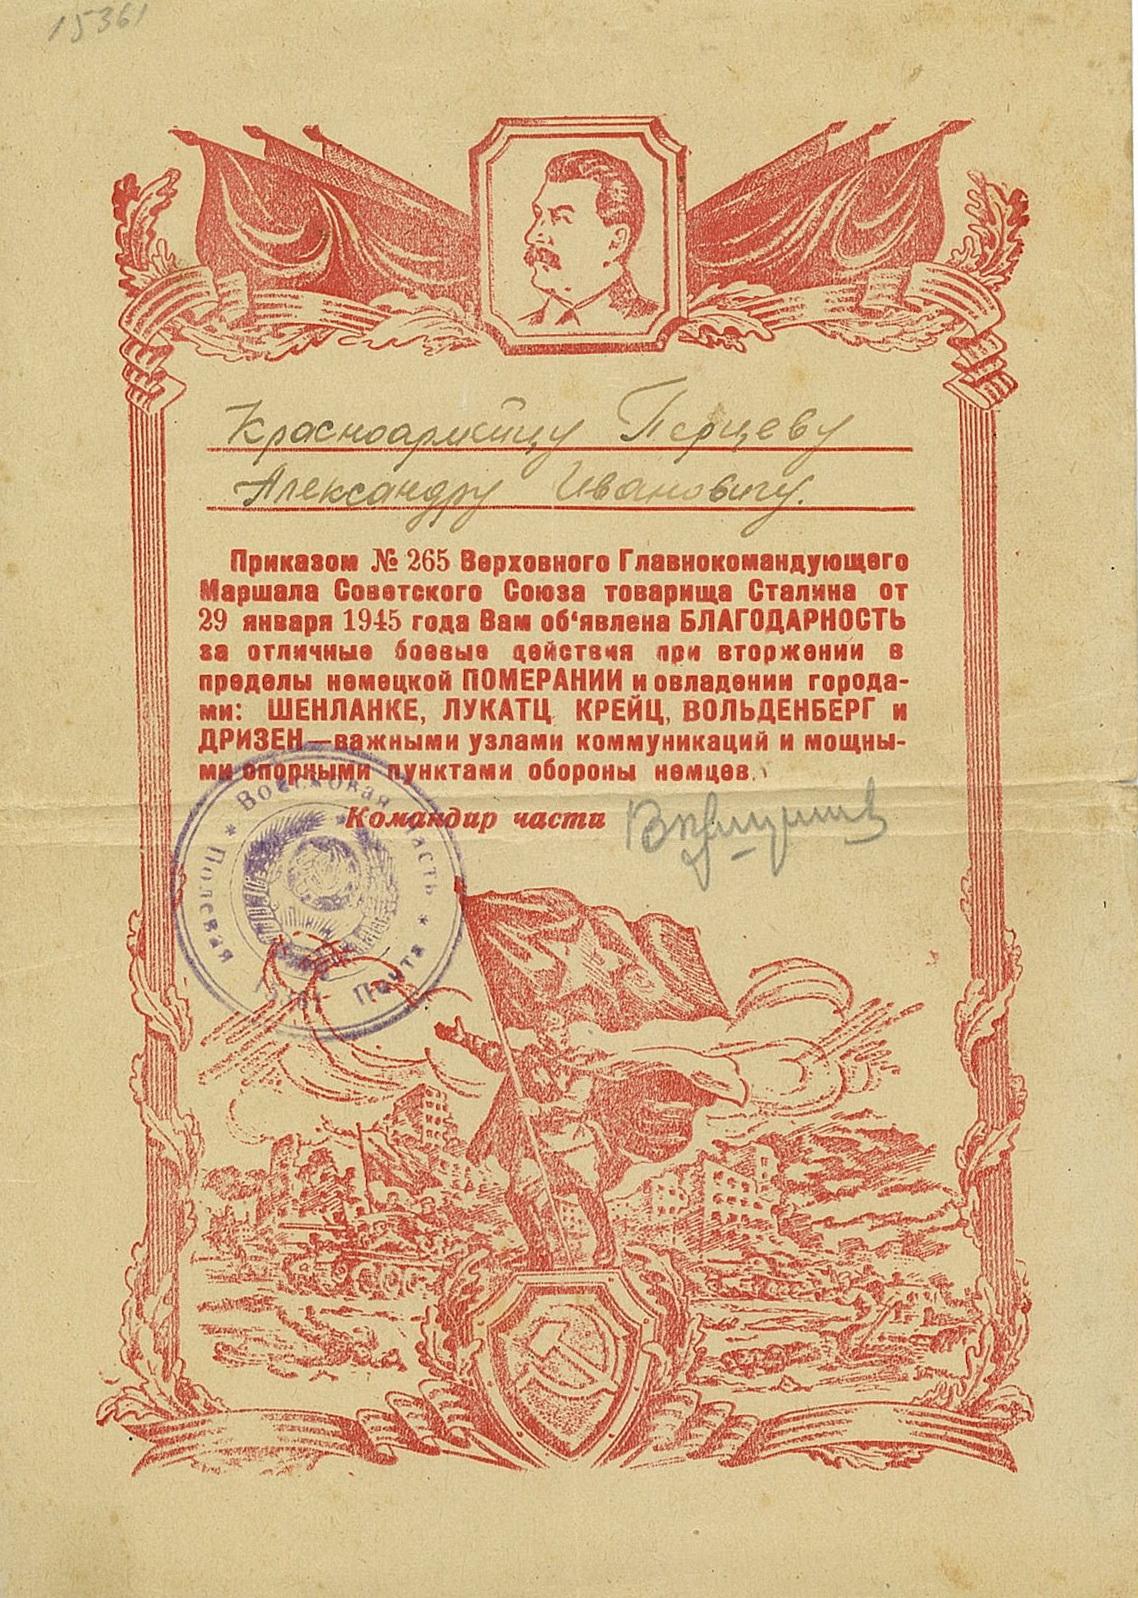 15361
Красноармейцу Перцеву
Александру Ивановичу.
Приказом № 265 Верховного Главнокомандующего
Маршала Советского Союза товарища Сталина от
29 января 1945 года Вам об‘явлена БЛАГОДАРНОСТЬ
за отличные боевые действия при вторжении в
пределы немецкой ПОМЕРАНИИ и овладении города-
ми: ШЕНЛАНКЕ, ЛУКАТЦ, КРЕЙЦ, ВОЛЬДЕНБЕРГ и
ДРИЗЕН—важными узлами коммуникаций и мощны-
ми опорными пунктами обороны немцев.
Командир части
* Войсковая часть *
Полевая Почта